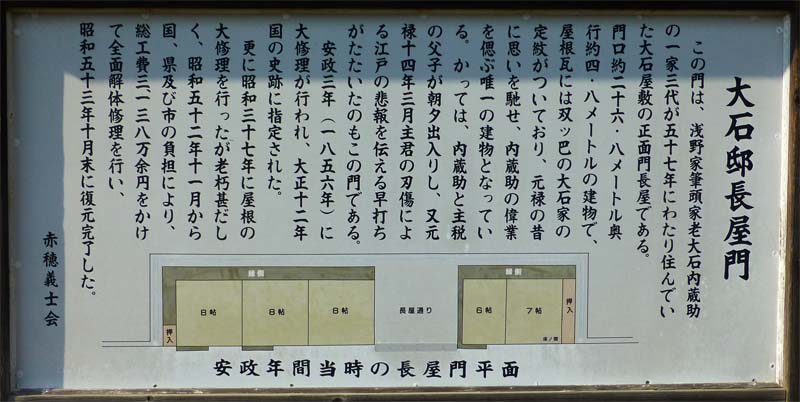 大石邸長屋門
この門は、浅野家筆頭家老大石内蔵助
の一家三代が五十七年にわたり住んでい
た大石屋敷の正面門長屋である。
門口約二十六・八メートル奥
行約四・八メートルの建物で、
屋根瓦には双ッ巴の大石家の
定紋がついており、元禄の昔
に思いを馳せ、内蔵助の偉業
を偲ぶ唯一の建物となってい
る。かっては、内蔵助と主税
の父子が朝夕出入りし、又元
禄十四年三月主君の刃傷によ
る江戸の悲報を伝える早打ち
がたたいたのもこの門である。
安政三年（一八五六年）に
大修理が行われ、大正十二年
国の史跡に指定された。
更に昭和三十七年に屋根の
大修理を行ったが老朽甚だし
く、昭和五十二年十一月から
国、県及び市の負担により、
総工費三一三八万余円をかけ
て全面解体修理を行い、
昭和五十三年十月末に復元完了した。
赤穂義士会
縁側
縁側
8帖
8帖
8帖
長屋通り
6帖
7帖
押入
押入
安政年間当時の長屋門平面